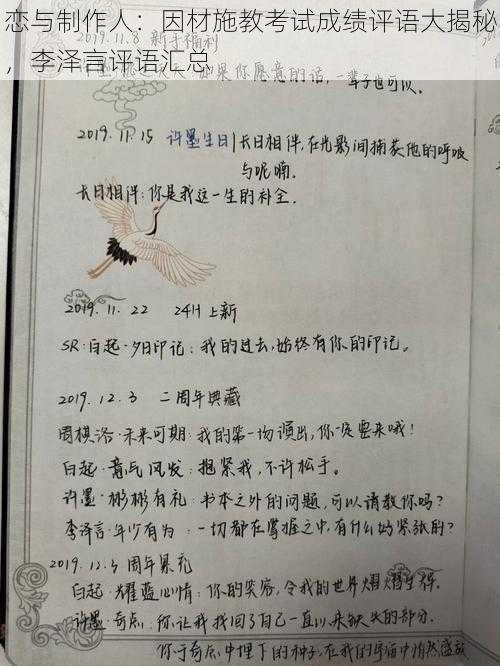 恋与制作人：因材施教考试成绩评语大揭秘
，李泽言评语汇总
11.8 新手福利
如果你愿意的话，一辈子也可以.
2019.11.15 许墨生日|长日相伴,在光影间捕获他的呼吸
与呢喃.
长日相伴:你是我这一生的补全.
2019.11.22 24H上新
SR:白起·夕日印记:我的过去,始终有你的印记。
2019.12.3 二周年典藏
周棋洛·未来可期:我的第一场演出,你一定要来哦!
白起·意气风发:抱紧我,不许松手。
许墨·彬彬有礼:书本之外的问题,可以请教你吗?
李泽言·年少有为:一切都在掌握之中,有什么好紧张的?
2019.12.5 周年氪充
白起·耀蓝心情:你的笑容,令我的世界熠熠生辉.
许墨·奇点:你让我找回了自己一直以来缺失的部分.
你于奇点中埋下的种子,在我的宇宙中悄然盛放